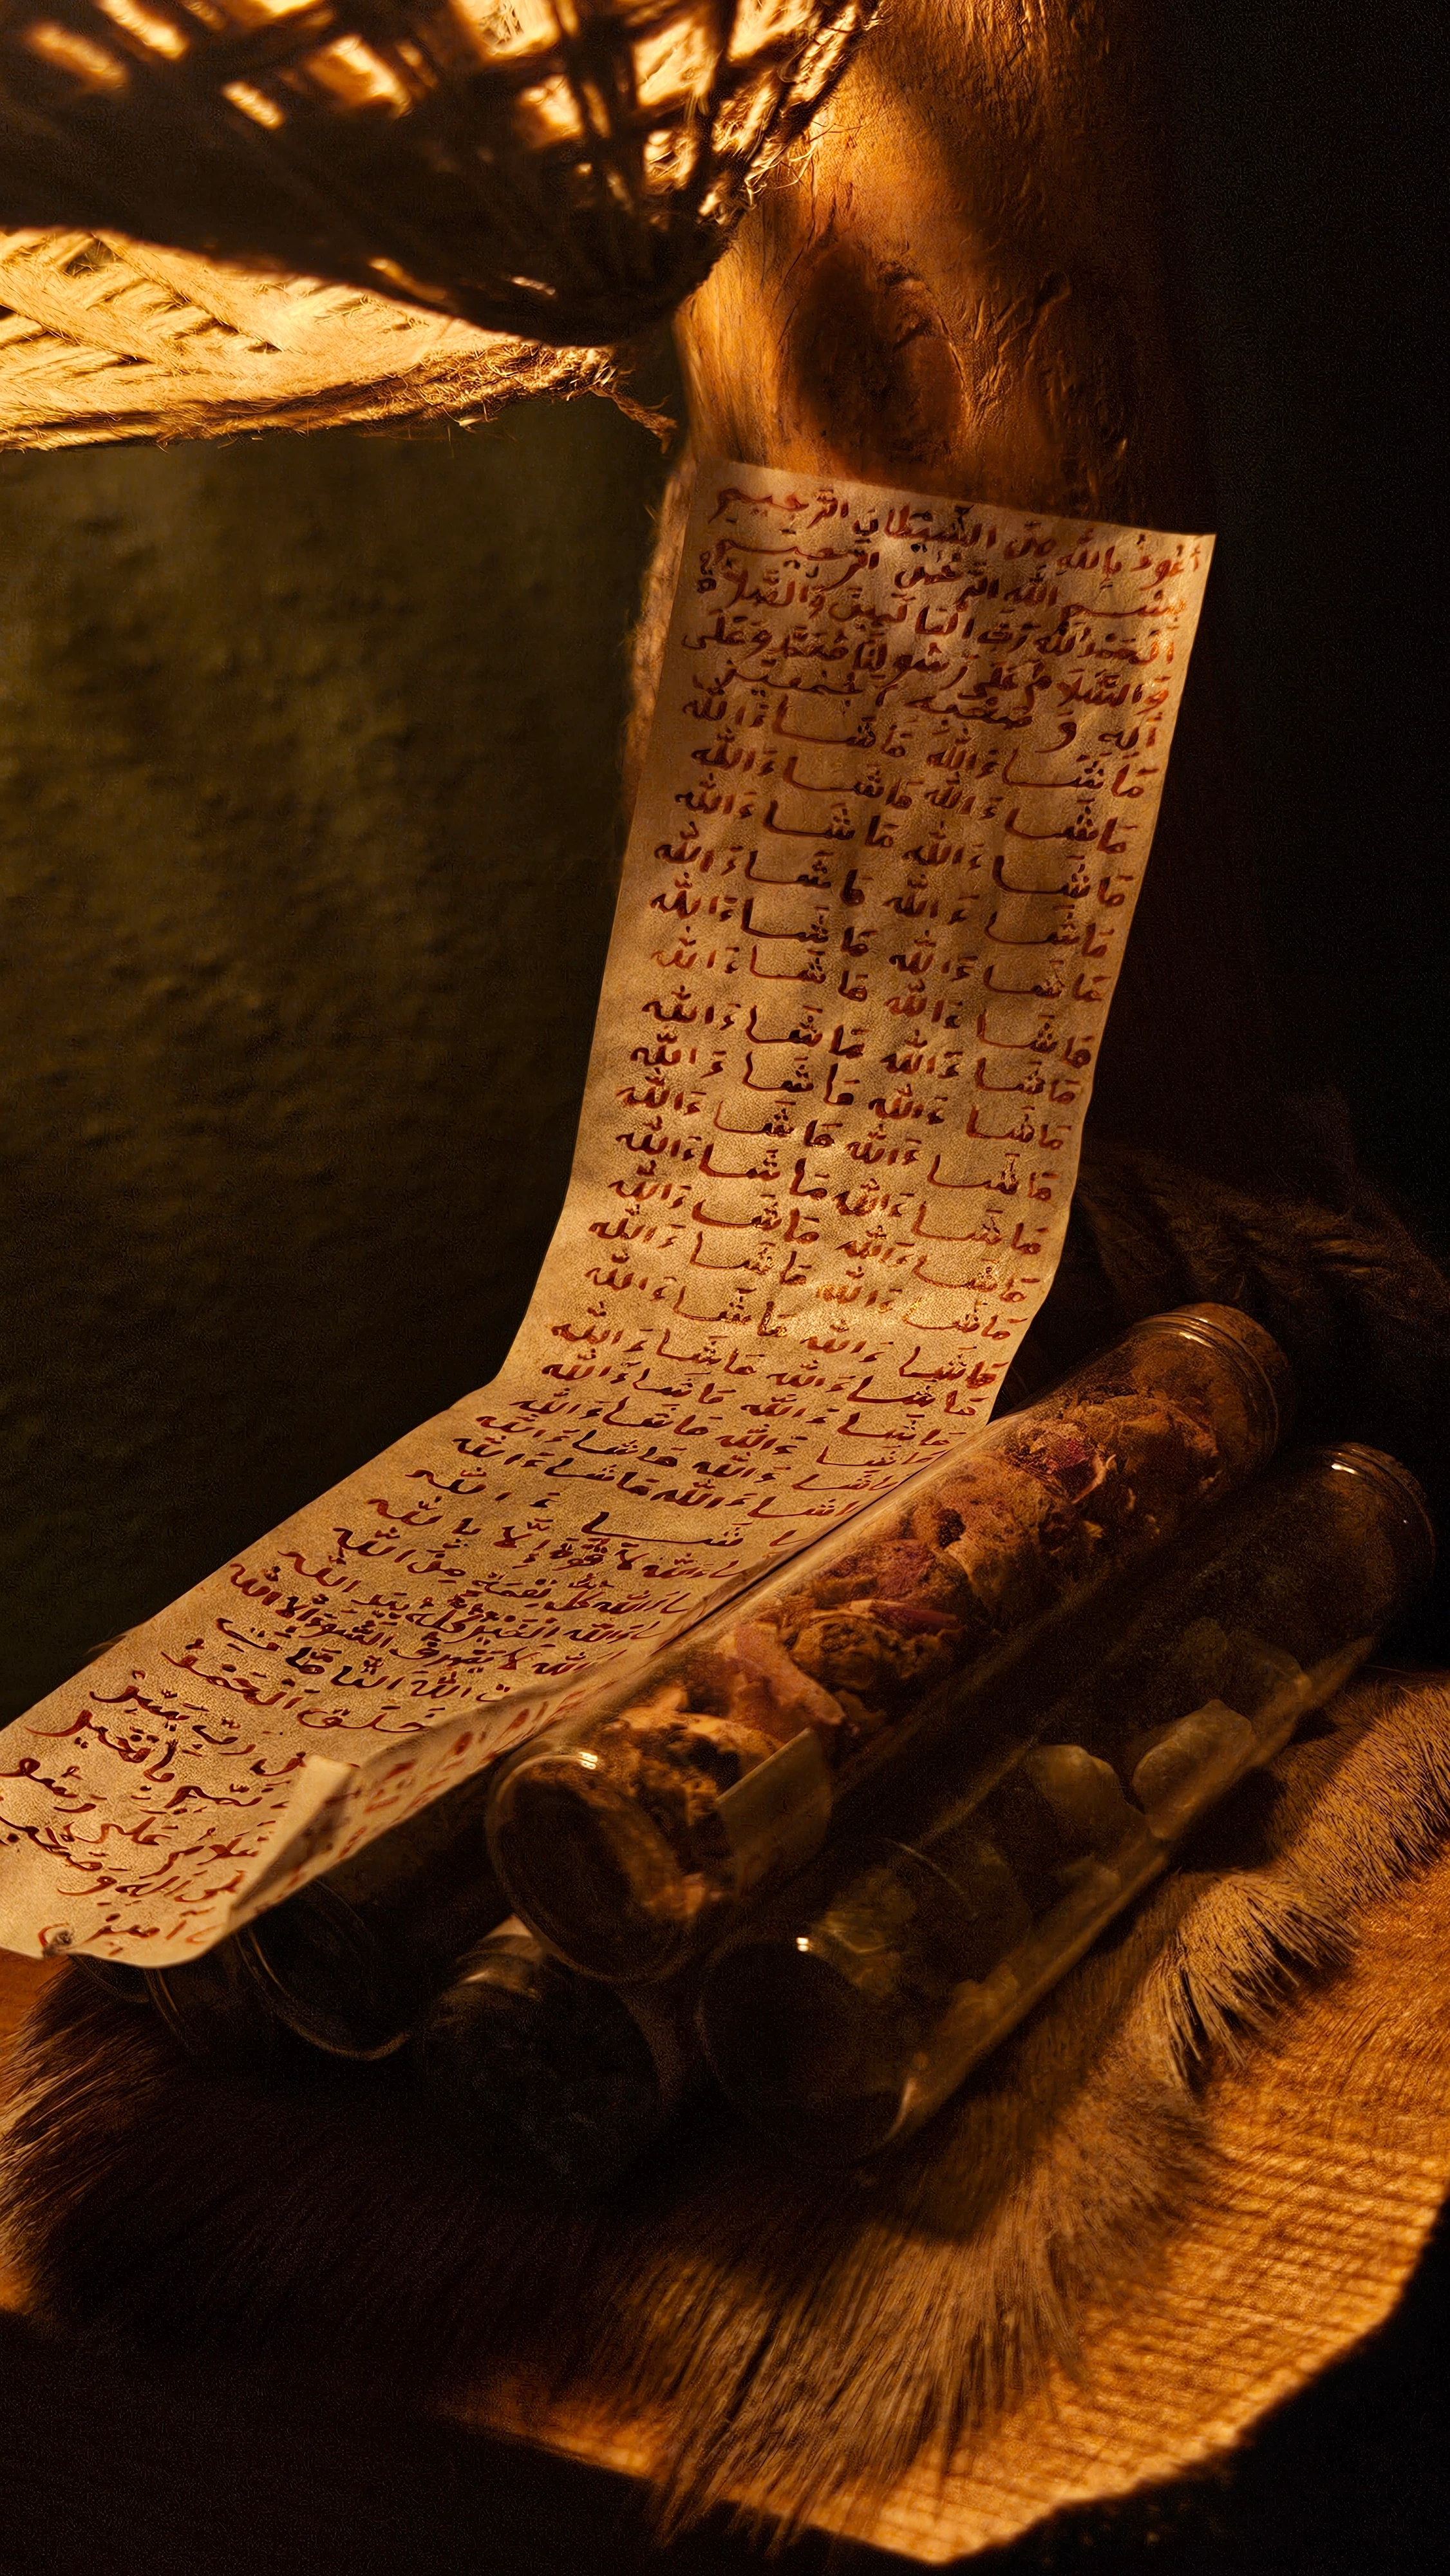 أَعُوذُ بِاللهِ مِنَ الشَّيْطَانِ الرَّجِيمِ
بِسْمِ اللهِ الرَّحْمٰنِ الرَّحِيمِ
اَلْحَمْدُ لِلّٰهِ رَبِّ الْعَالَمِينَ وَالصَّلَاةُ
وَالسَّلَامُ عَلَى رَسُولِنَا مُحَمَّدٍ وَعَلَى
آلِهِ وَصَحْبِهِ أَجْمَعِينَ
مَاشَاءَ اللهُ مَاشَاءَ اللهُ
مَاشَاءَ اللهُ مَاشَاءَ اللهُ
مَاشَاءَ اللهُ مَاشَاءَ اللهُ
مَاشَاءَ اللهُ مَاشَاءَ اللهُ
مَاشَاءَ اللهُ مَاشَاءَ اللهُ
مَاشَاءَ اللهُ مَاشَاءَ اللهُ
مَاشَاءَ اللهُ مَاشَاءَ اللهُ
مَاشَاءَ اللهُ مَاشَاءَ اللهُ
مَاشَاءَ اللهُ مَاشَاءَ اللهُ
مَاشَاءَ اللهُ مَاشَاءَ اللهُ
مَاشَاءَ اللهُ مَاشَاءَ اللهُ
مَاشَاءَ اللهُ مَاشَاءَ اللهُ
مَاشَاءَ اللهُ مَاشَاءَ اللهُ
مَاشَاءَ اللهُ مَاشَاءَ اللهُ
مَاشَاءَ اللهُ مَاشَاءَ اللهُ
مَاشَاءَ اللهُ مَاشَاءَ اللهُ
اشَاءَ اللهُ مَاشَاءَ اللهُ
اشَاءَ اللهُ مَاشَاءَ اللهُ
شَاءَ اللهُ
اءَ اللهُ لَا قُوَّةَ إِلَّا بِاللهِ
اءَ اللهُ كُلُّ نِعْمَةٍ مِنَ اللهِ
اءَ اللهُ الْخَيْرُ كُلُّهُ بِيَدِ اللهِ
اللهُ لَا يَصْرِفُ السُّوءَ إِلَّا اللهُ
اللهِ التَّامَّاتِ
خَلَقَ الْحَمْدُ
رَبِّ يَسِّرْ
تَمِّمْ بِالْخَيْرِ
عَلَى
آلِهِ وَصَحْبِهِ
آمِين